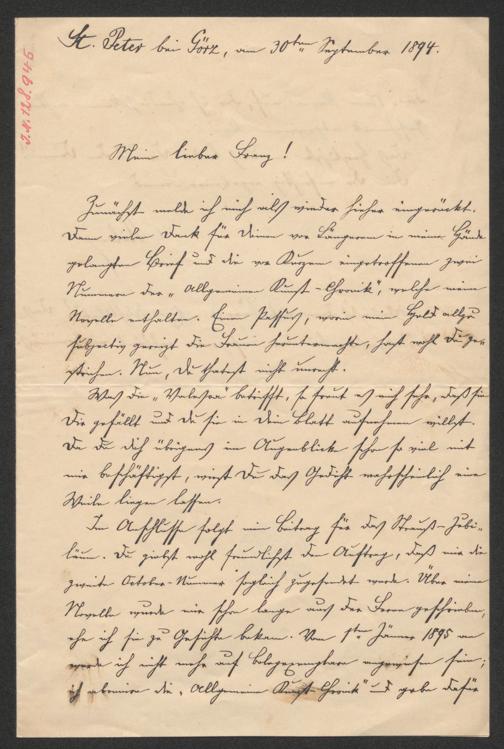 J.N. 128.945
St. Peter bei Görz, am 30ten September 1894.
Mein lieber Franz!
Zunächst melde ich mich als wieder hieher eingerückt.
Dann vielen Dank für Deinen vor Längerem in meine Hände
gelangten Brief und die vor Kurzem eingetroffenen zwei
Nummern der „Allgemeinen Kunst-Chronik", welche meine
Novelle enthalten. Einen Passus, worin mein Held allzu
subjectiv gereizt die Frauen heruntermachte, hast wohl Du ge-
strichen. Nun, Du thatest nicht unrecht.
Was die betrifft, so freut es mich sehr, daß sie
Dir gefällt und Du sie in Dein Blatt aufnehmen willst.
Da Du Dich übrigens im Augenblicke schon so viel mit
mir beschäftigst, wirst Du das Gedicht wahrscheinlich eine
Weile liegen lassen.
Im Anschlusse folgt ein Beitrag für das Strauß-Jubi-
läum. Du giebst wohl freundlichst den Auftrag, daß mir die
zweite October-Nummer sogleich zugesendet werde. Über meine
Novelle wurde mir schon lange aus der Ferne geschrieben,
ehe ich sie zu Gesichte bekam. Vom 1ten Jänner 1895 an
werde ich nicht mehr auf Belegexemplare angewiesen sein;
ich abonniere die „Allgemeine Kunst-Chronik" und gebe dafür